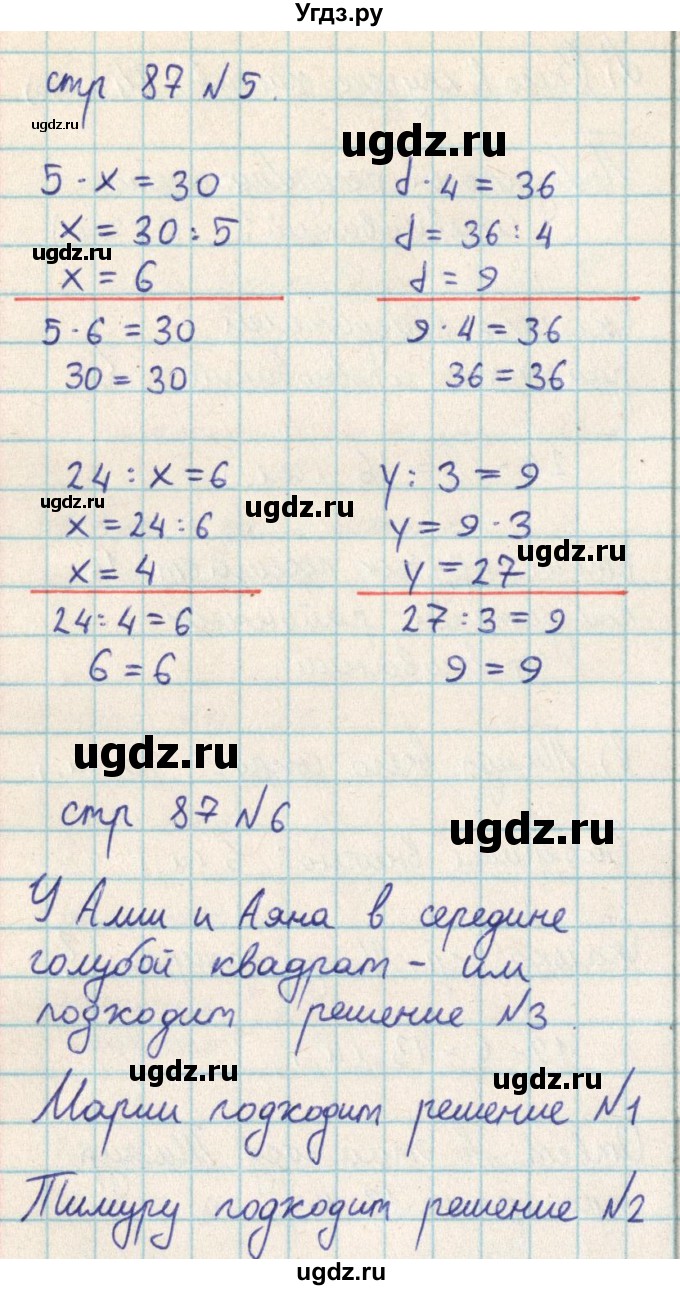 Угдз.ру
стр 87 №5.
ugdz.ru
ugdz.ru
5 · x = 30
x = 30 : 5
ugdz.ru
x = 6
5 · 6 = 30
30 = 30
d · 4 = 36
d = 36 : 4
d = 9
9 · 4 = 36
36 = 36
24 : x = 6
ugdz.ru
x = 24 : 6
x = 4
24 : 4 = 6
6 = 6
ugdz.ru
y : 3 = 9
y = 9 · 3
ugdz.ru
y = 27
27 : 3 = 9
9 = 9
ugdz.ru
стр 87 №6
ugdz.ru
У Алии и Аяна в середине
голубой квадрат - им
подходит решение №3
ugdz.ru
ugdz.ru
Марии подходит решение №1
Тимуру подходит решение №2
ugdz.ru